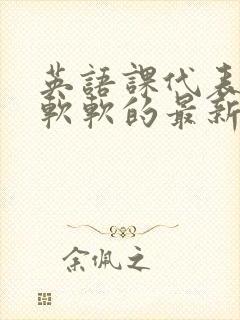 英語課代表
軟軟的最新
余佩之